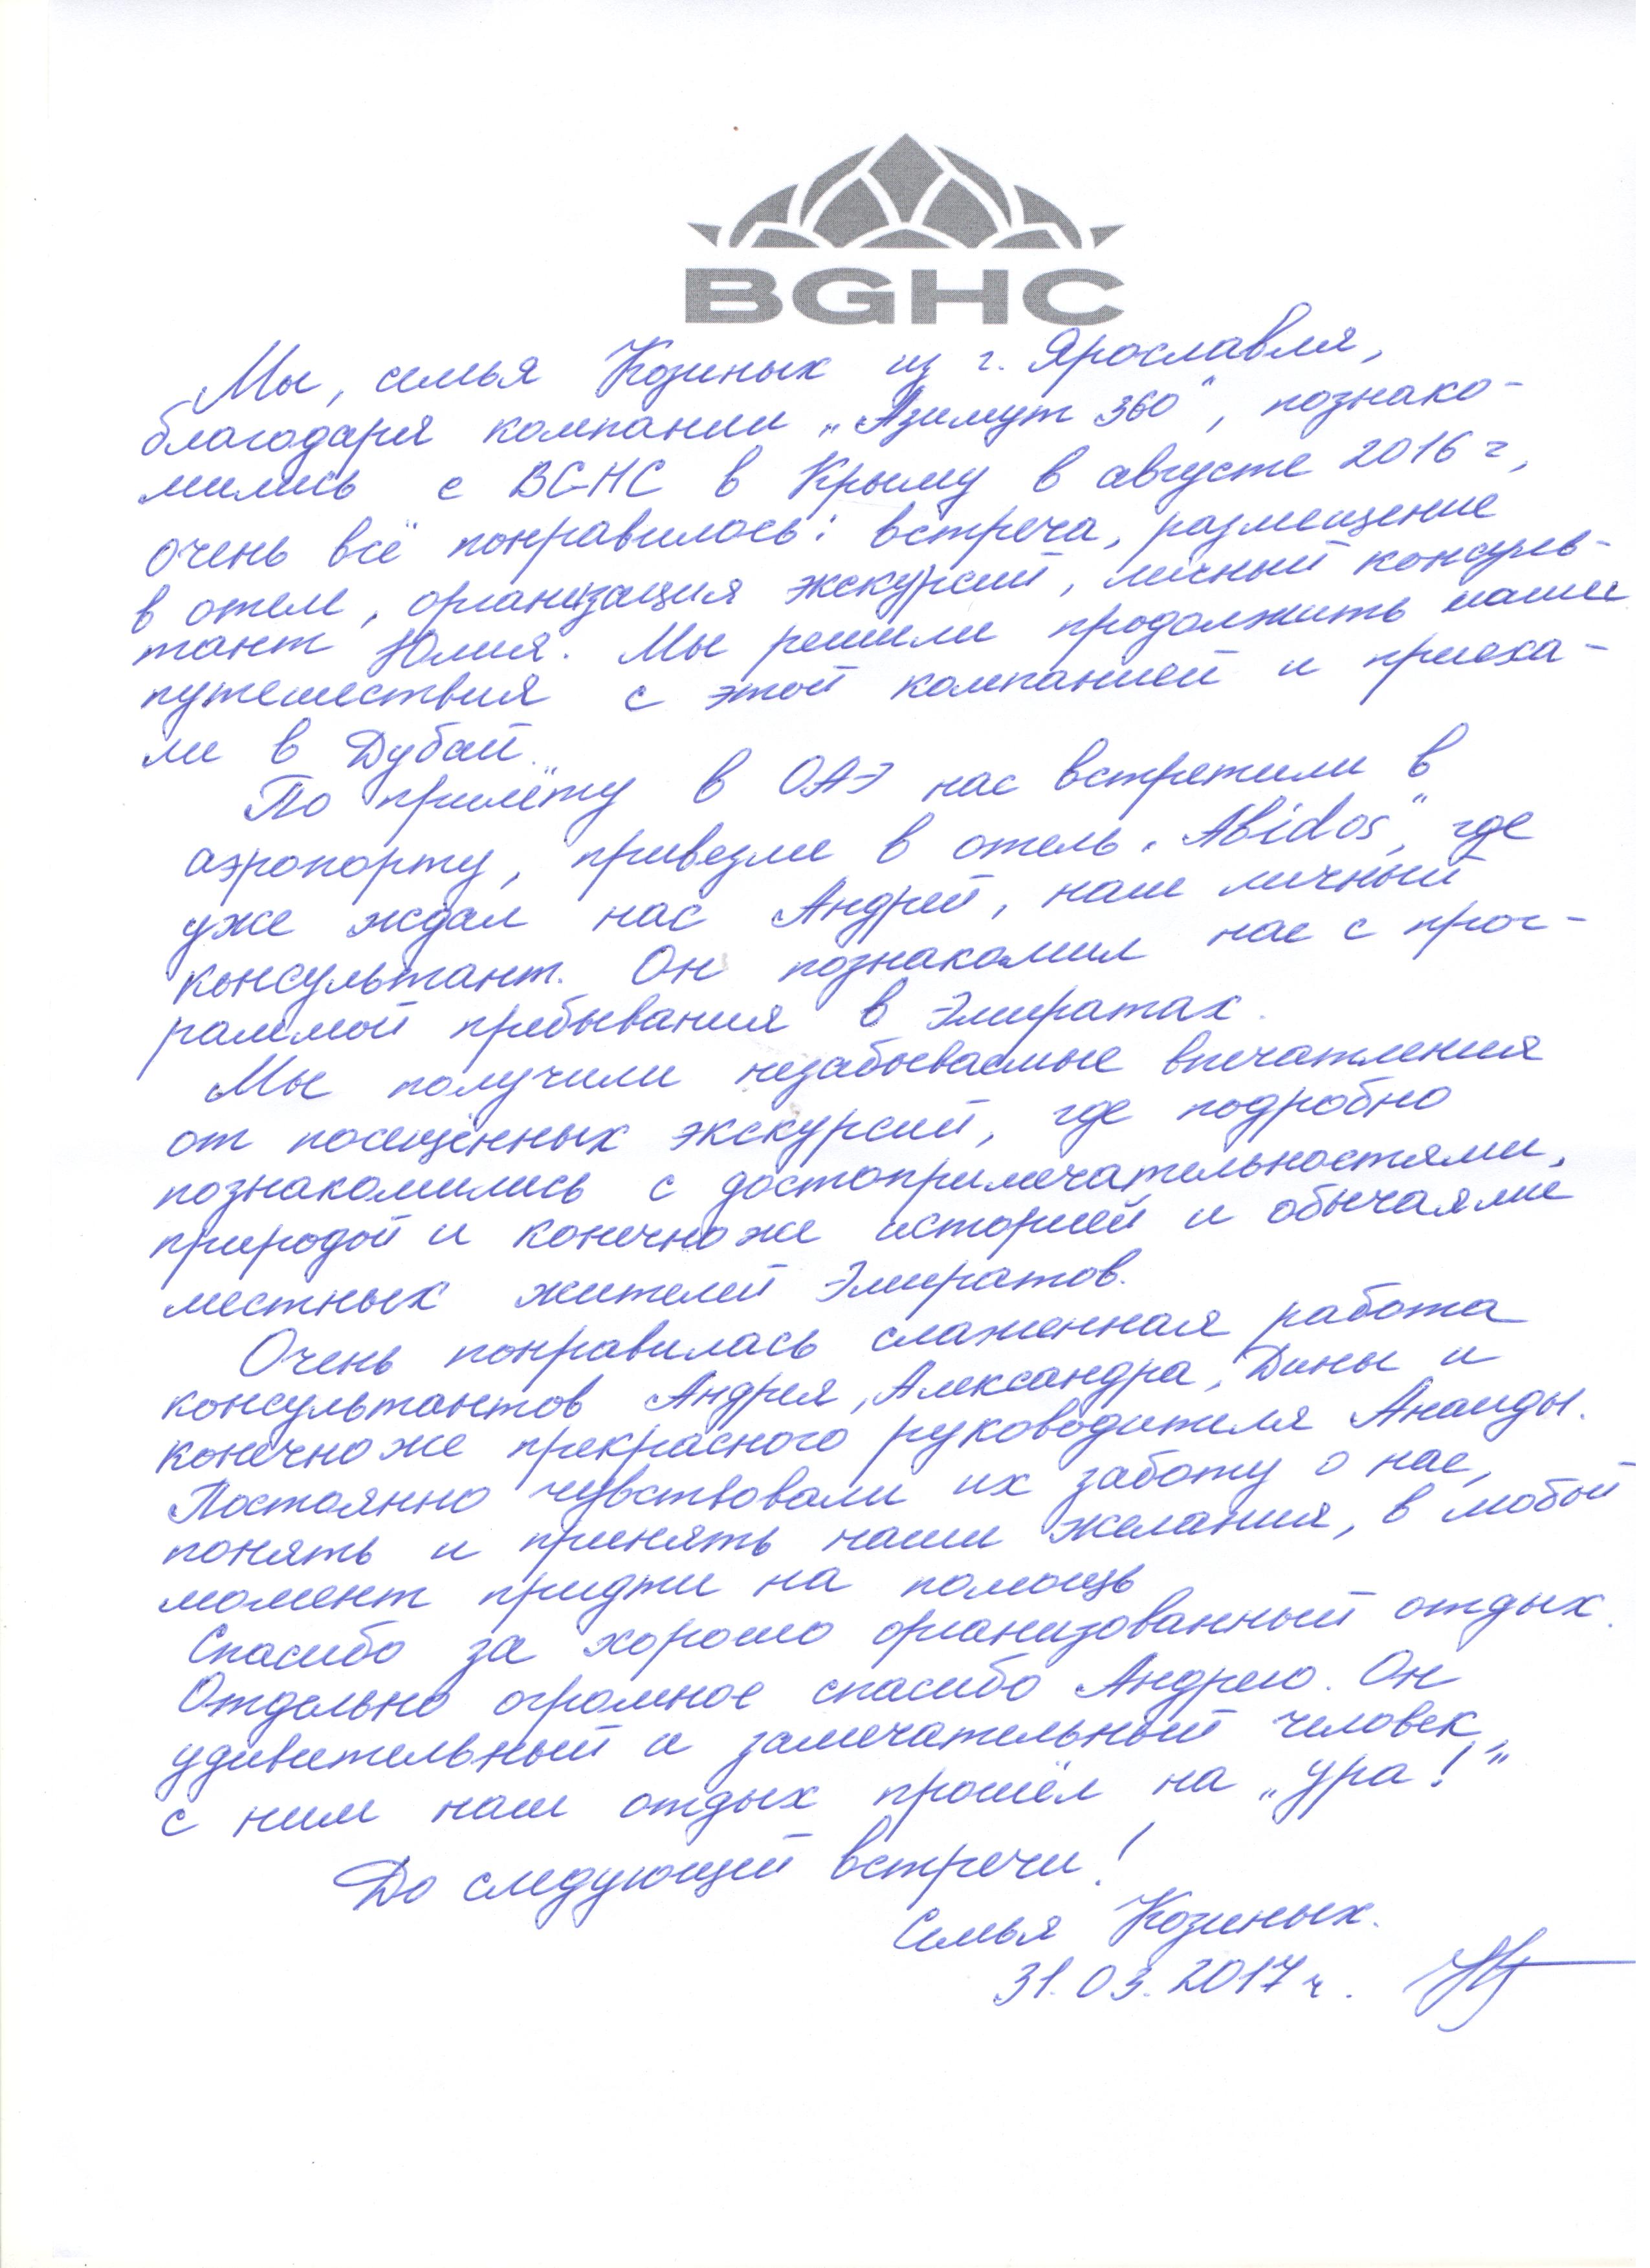 BGHC
Мы, семья Козиных из г. Ярославля,
благодаря компании „Азимут 360", познако-
мились с BGHC в Крыму в августе 2016 г,
очень всё понравилось: встреча, размещение
в отеле, организация экскурсий, личный консуль-
тант Юлия. Мы решили продолжить наши
путешествия с этой компанией и приеха-
ли в Дубай.
По прилёту в ОАЭ нас встретили в
аэропорту, привезли в отель „Abidos", где
уже ждал нас Андрей, наш личный
консультант. Он познакомил нас с прог-
раммой пребывания в Эмиратах.
Мы получили незабываемые впечатления
от посещённых экскурсий, где подробно
познакомились с достопримечательностями,
природой и конечно же историей и обычаями
местных жителей Эмиратов.
Очень понравилась слаженная работа
консультантов Андрея, Александра, Дины и
конечно же прекрасного руководителя Анаиды.
Постоянно чувствовали их заботу о нас,
понять и принять наши желания, в любой
момент придти на помощь
Спасибо за хорошо организованный отдых.
Отдельно огромное спасибо Андрею. Он
удивительный и замечательный человек,
с ним наш отдых прошёл на „ура!"
До следующей встречи!
Семья Козиных.
31.03.2017 г.